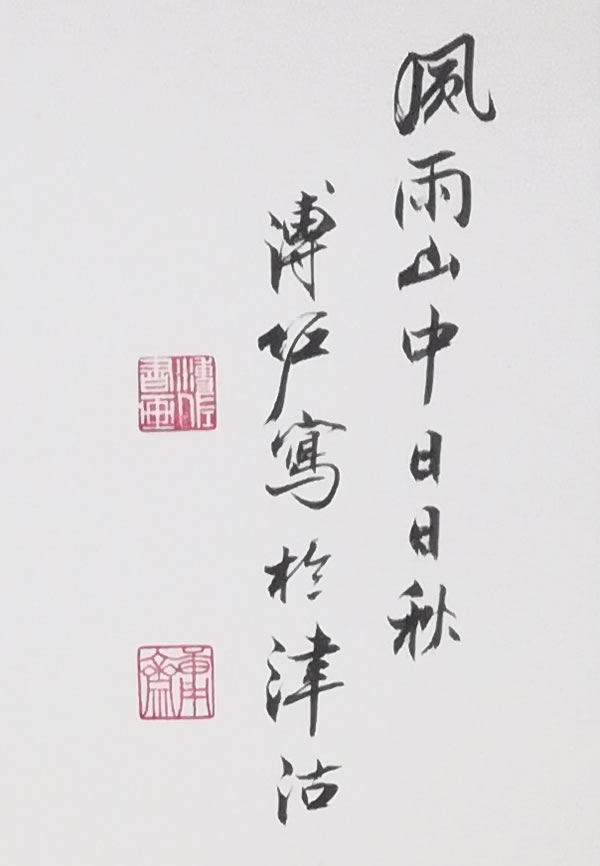 風雨山中日日秋
溥佐寫於津沽
溥佐書畫
庸齋